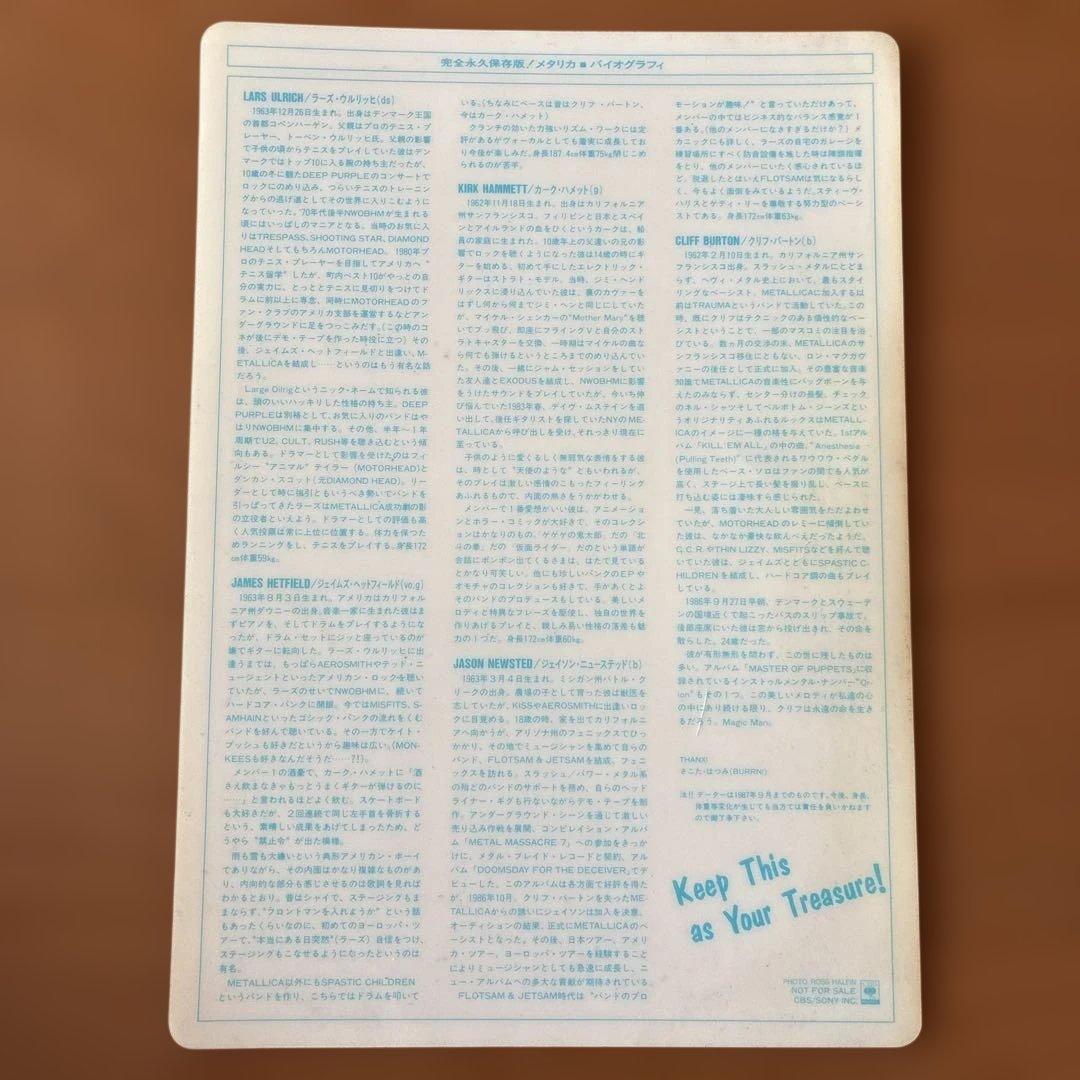 完全永久保存版!メタリカ■バイオグラフィ
LARS ULRICH/ラーズ・ウルリッヒ(ds)
1963年12月26日生まれ。出身はデンマーク王国
の首都コペンハーゲン。父親はプロのテニス・プ
レーヤー、トーベン・ウルリッヒ氏。父親の影響
で子供の頃からテニスをプレイしていた彼はデン
マークではトップ10に入る腕の持ち主だったが、
10歳の冬に観たDEEP PURPLEのコンサートで
ロックにのめり込み、つらいテニスのトレーニン
グからの逃げ道としてその世界に入りこむように
なっていった。'70年代後半NWOBHMが生まれる
頃にはいっぱしのマニアとなる。当時のお気に入
りはTRESPASS, SHOOTING STAR, DIAMOND
HEADそしてもちろんMOTORHEAD。1980年プ
ロのテニス・プレーヤーを目指してアメリカへ“
テニス留学”したが、町内ベスト10がやっとの自
分の実力に、とっととテニスに見切りをつけてド
ラムに前以上に専念、同時にMOTORHEADのフ
ァン・クラブのアメリカ支部を運営するなどアン
ダーグラウンドに足をつっこみだす。(この時のコ
ネが後にデモ・テープを作った時役に立つ) その
後、ジェイムズ・ヘットフィールドと出逢い、M-
ETALLICAを結成し……というのはもう有名な話
だろう。
Large Oilrigというニック・ネームで知られる彼
は、頭のいいハッキリした性格の持ち主。DEEP
PURPLEは別格として、お気に入りのバンドはや
はりNWOBHMに集中する。その他、半年〜1年
周期でU2, CULT, RUSH等を聴き込むという傾
向もある。ドラマーとして影響を受けたのはフィ
ルシー“アニマル”テイラー (MOTORHEAD)と
ダンカン・スコット(元DIAMOND HEAD)。リー
ダーとして時に強引ともいうべき勢いでバンドを
引っぱってきたラーズはMETALLICA成功劇の影
の立役者といえよう。ドラマーとしての評価も高
く人気投票は常に上位に位置する。体力を保つた
めランニングをし、テニスをプレイする。身長172
cm体重59kg。
JAMES HETFIELD/ジェイムズ・ヘットフィールド(vo,g)
1963年8月3日生まれ。アメリカはカリフォル
ニア州ダウニーの出身。音楽一家に生まれた彼はま
ずピアノを、そしてドラムをプレイするようにな
ったが、ドラム・セットにジッと座っているのが
嫌でギターに転向した。ラーズ・ウルリッヒに出
逢うまでは、もっぱらAEROSMITHやテッド・ニ
ュージェントといったアメリカン・ロックを聴い
ていたが、ラーズのせいでNWOBHMに、続いて
ハードコア・パンクに開眼。今ではMISFITS, S-
AMHAINといったゴシック・パンクの流れをくむ
バンドを好んで聴いている。その一方でケイト・
ブッシュも好きだというから趣味は広い。(MON-
KEESも好きなんだそうだ……?!)。
メンバー1の酒豪で、カーク・ハメットに「酒
さえ飲まなきゃもっとうまくギターが弾けるのに
……」と言われるほどよく飲む。スケートボード
も大好きだが、2回連続で同じ左手首を骨折する
という、素晴しい成果をあげてしまったため、ど
うやら“禁止令”が出た模様。
雨も雪も大嫌いという典形アメリカン・ボーイ
でありながら、その内面はかなり複雑なものがあ
り、内向的な部分も感じさせるのは歌詞を見れば
わかるとおり。昔はシャイで、ステージングもま
まならず、“フロントマンを入れようか”という話
もあったくらいなのに、初めてのヨーロッパ・ツ
アーで、“本当にある日突然”(ラーズ) 自信をつけ、
ステージングもこなせるようになったというのは
有名。
METALLICA以外にもSPASTIC CHILDREN
というバンドを作り、こちらではドラムを叩いて
いる。(ちなみにベースは昔はクリフ・バートン、
今はカーク・ハメット)
クランチの効いた力強いリズム・ワークには定
評があるがヴォーカルとしても着実に成長してお
り今後が楽しみだ。身長187.4cm体重75kg閉じこめ
られるのが苦手。
KIRK HAMMETT/カーク・ハメット(g)
1962年11月18日生まれ。出身はカリフォルニア
州サンフランシスコ。フィリピンと日本とスペイ
ンとアイルランドの血をひくというカークは、船
員の家庭に生まれた。10歳年上の父違いの兄の影
響でロックを聴くようになった彼は14歳の時にギ
ターを始める。初めて手にしたエレクトリック・
ギターはストラト・モデル。当時、ジミ・ヘンド
リックスに浸り込んでいた彼は、裏のカヴァーを
はずし何から何までジミ・ヘンと同じにしていた
が、マイケル・シェンカーの“Mother Mary”を聴
いてブッ飛び、即座にフライングVと自分のスト
ラトキャスターを交換、一時期はマイケルの曲な
ら何でも弾けるというところまでのめり込んでい
た。その後、一緒にジャム・セッションをしてい
た友人達とEXODUSを結成し、NWOBHMに影響
をうけたサウンドをプレイしていたが、今いち伸
び悩んでいた1983年春、デイヴ・ムステインを追
い出して、後任ギタリストを探していたNYのME-
TALLICAから呼び出しを受け、それっきり現在に
至っている。
子供のように愛くるしく無邪気な表情をする彼
は、時として“天使のような”ともいわれるが、
そのプレイは激しい感情のこもったフィーリング
あふれるもので、内面の熱さをうかがわせる。
メンバーで1番愛想がいい彼は、アニメーショ
ンとホラー・コミックが大好きで、そのコレクシ
ョンはかなりのもの。「ゲゲゲの鬼太郎」だの「北
斗の拳」だの「仮面ライダー」だのという単語が
会話にポンポン出てくるさまは、はたで見ている
とかなり可笑しい。他にも珍しいパンクのEPや
オモチャのコレクションも好きで、手があくとよ
そのバンドのプロデュースもしている。美しいメ
ロディと特異なフレーズを駆使し、独自の世界を
作りあげるプレイと、親しみ易い性格の落差も魅
力の1つだ。身長172cm体重60kg。
JASON NEWSTED/ジェイソン・ニューステッド(b)
1963年3月4日生まれ。ミシガン州バトル・ク
リークの出身。農場の子として育った彼は獣医を
志していたが、KISSやAEROSMITHに出逢いロッ
クに目覚める。18歳の時、家を出てカリフォルニ
アへ向かうが、アリゾナ州のフェニックスでひっ
かかり、その地でミュージシャンを集めて自らの
バンド、FLOTSAM & JETSAMを結成、フェニ
ックスを訪れる。スラッシュ/パワー・メタル系
の殆どのバンドのサポートを務め、自らのヘッド
ライナー・ギグも行ないながらデモ・テープを制
作。アンダーグラウンド・シーンを通じて激しい
売り込み作戦を展開、コンピレイション・アルバ
ム「METAL MASSACRE 7」への参加をきっか
けに、メタル・ブレイド・レコードと契約、アル
バム「DOOMSDAY FOR THE DECEIVER」でデ
ビューした。このアルバムは各方面で好評を得た
が、1986年10月、クリフ・バートンを失ったME-
TALLICAからの誘いにジェイソンは加入を決意。
オーディションの結果、正式にMETALLICAのベ
ーシストとなった。その後、日本ツアー、アメリ
カ・ツアー、ヨーロッパ・ツアーを経験すること
によりミュージシャンとしても急速に成長し、ニ
ュー・アルバムへの多大な貢献が期待されている
FLOTSAM & JETSAM時代は“バンドのプロ
モーションが趣味!”と言っていただけあって、
メンバーの中ではビジネス的なバランス感覚が1
番ある。(他のメンバーになさすぎるだけか?) メ
カニックにも詳しく、ラーズの自宅のガレージを
練習場所にすべく防音設備を施した時は陣頭指揮
をとり、他のメンバーにいたく感心されているほ
ど。脱退したとはいえFLOTSAMは気になるらし
く、今もよく面倒をみているようだ。スティーヴ・
ハリスとゲディ・リーを尊敬する努力型のベーシ
ストである。身長172cm体重63kg。
CLIFF BURTON/クリフ・バートン(b)
1962年2月10日生まれ。カリフォルニア州サン
フランシスコ出身。スラッシュ・メタルにとどま
らず、ヘヴィ・メタル史上において、最もスタイ
リングなベーシスト。METALLICAに加入する以
前はTRAUMAというバンドで活動していた。この
時、既にクリフはテクニックのある個性的なベー
シストということで、一部のマスコミの注目を浴
びている。数ヵ月の交渉の末、METALLICAのサ
ンフランシスコ移住にともない、ロン・マクガヴ
ァニーの後任として正式に加入。その豊富な音楽
知識でMETALLICAの音楽性にバッグボーンを与
えたのみならず、センター分けの長髪、チェック
のネル・シャツそしてベルボトム・ジーンズとい
うオリジナリティあふれるルックスはMETALL-
ICAのイメージに一種の格を与えていた。1stアル
バム「KILL 'EM ALL」の中の曲、“Anesthesia—
(Pulling Teeth)”に代表されるワウワウ・ペダル
を使用したベース・ソロはファンの間でも人気が
高く、ステージ上で長い髪を振り乱し、ベースに
打ち込む姿には凄味すら感じられた。
一見、落ち着いた大人しい雰囲気をただよわせ
ていたが、MOTORHEADのレミーに傾倒してい
た彼は、なかなか豪快な飲んべえだったようだ。
G.C.RやTHIN LIZZY, MISFITSなどを好んで聴
いていた彼は、ジェイムズとともにSPASTIC C-
HILDRENを結成し、ハードコア調の曲もプレイ
している。
1986年9月27日早朝、デンマークとスウェーデ
ンの国境近くで起こったバスのスリップ事故で、
後部座席にいた彼は窓から投げ出され、その命を
散らした。24歳だった。
彼が有形無形を問わず、この世に残したものは
多い。アルバム「MASTER OF PUPPETS」に収
録されているインストゥルメンタル・ナンバー“Or-
ion”もその1つ。この美しいメロディが私達の心
の中にあり続ける限り、クリフは永遠の命を生き
るだろう。Magic Man。
THANX!
さこた・はつみ(BURRN!)
注!! データーは1987年9月までのものです。今後、身長、
体重等変化が生じても当方では責任を負いかねます
ので御了承下さい。
Keep This
as Your Treasure!
PHOTO: ROSS HALFIN
NOT FOR SALE
CBS/SONY INC.